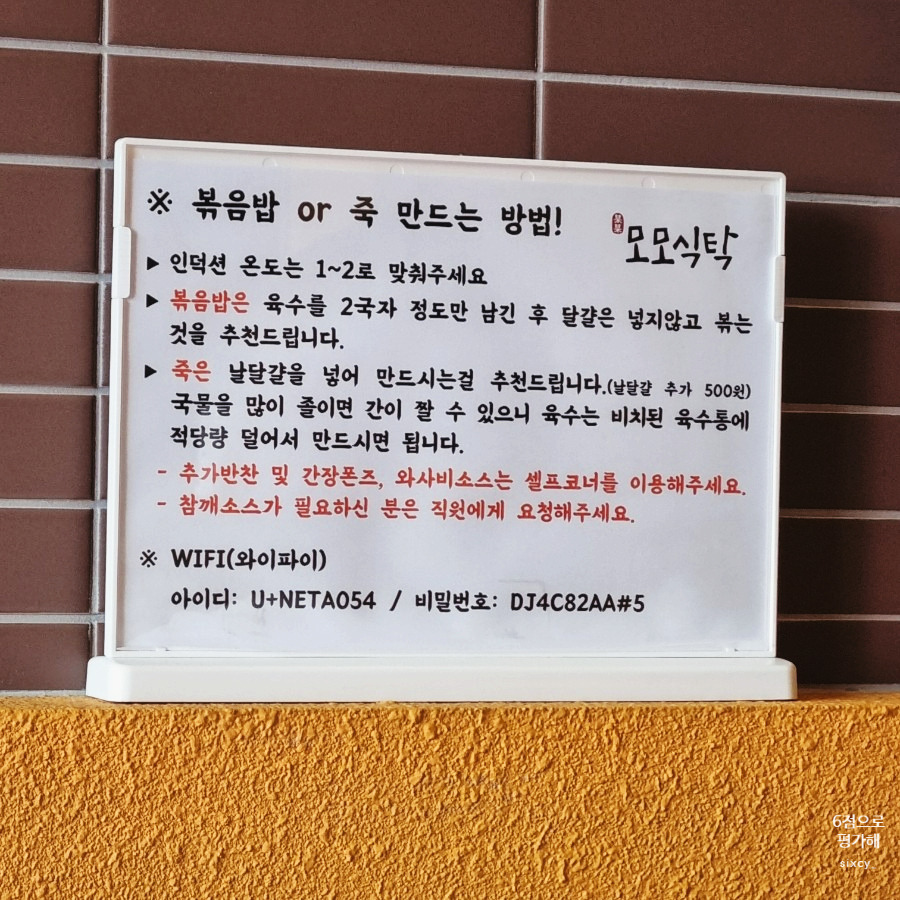 ※ 볶음밥 or 죽 만드는 방법!
모모식탁
▶ 인덕션 온도는 1~2로 맞춰주세요
▶ 볶음밥은 육수를 2국자 정도만 남긴 후 달걀은 넣지않고 볶는
것을 추천드립니다.
▶ 죽은 날달걀을 넣어 만드시는걸 추천드립니다.(날달걀 추가 500원)
국물을 많이 졸이면 간이 짤 수 있으니 육수는 비치된 육수통에
적당량 덜어서 만드시면 됩니다.
- 추가반찬 및 간장폰즈, 와사비소스는 셀프코너를 이용해주세요.
- 참깨소스가 필요하신 분은 직원에게 요청해주세요.
※ WIFI(와이파이)
아이디: U+NETA054 / 비밀번호: DJ4C82AA#5
6점으로
평가해
sixcy